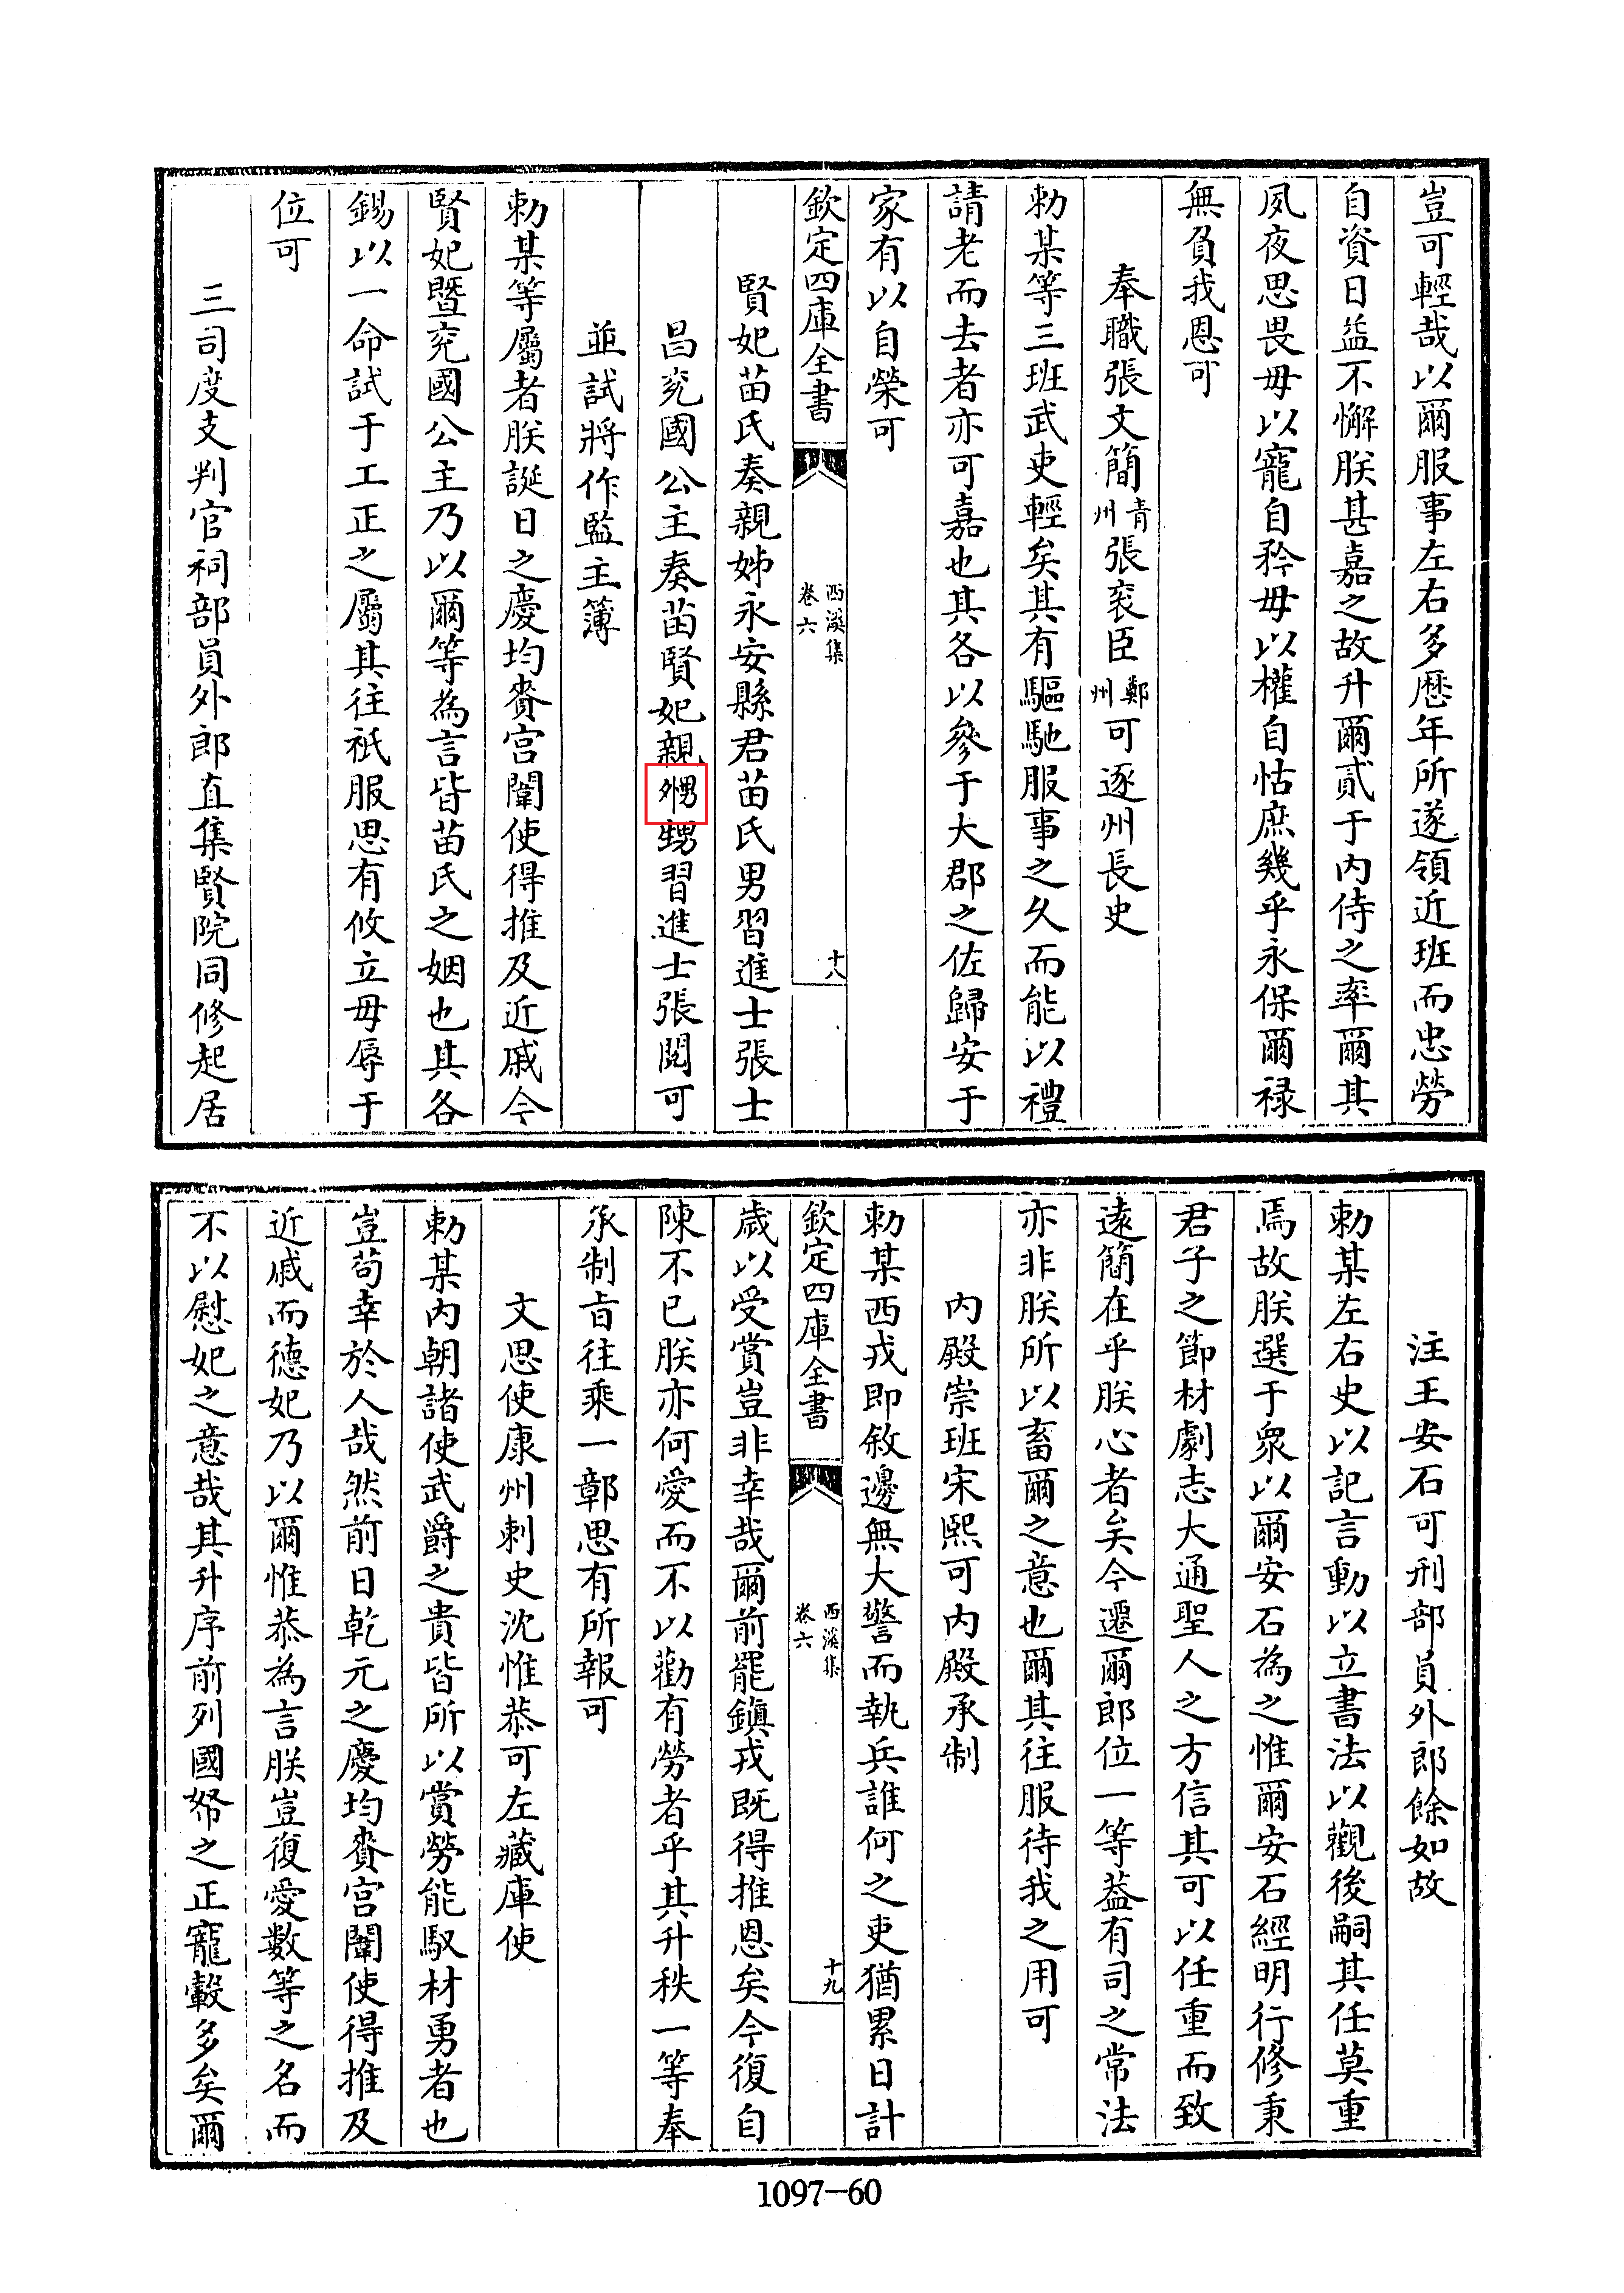 豈可輕哉以爾服事左右多歴年所遂領近班而忠勞
自資日益不懈朕甚嘉之故升爾貳于内侍之率爾其
夙夜思畏毋以寵自矜毋以權自怙庶幾乎永保爾禄
無負我恩可
奉職張文簡青州張衮臣鄭州可逐州長史
勅某等三班武吏輕矣其有驅馳服事之久而能以禮
請老而去者亦可嘉也其各以參于大郡之佐歸安于
家有以自榮可
欽定四庫全書 西溪集 卷六 十八
賢妃苗氏奏親姊永安縣君苗氏男習進士張士
昌兖國公主奏苗賢妃親外男甥習進士張閲可
並試將作監主簿
勅某等屬者朕誕日之慶均賚宫闈使得推及近戚今
賢妃暨兖國公主乃以爾等為言皆苗氏之姻也其各
錫以一命試于工正之屬其往祇服思有攸立毋辱于
位可
三司度支判官祠部員外郎直集賢院同修起居
注王安石可刑部員外郎餘如故
勅某左右史以記言動以立書法以觀後嗣其任莫重
焉故朕選于衆以爾安石為之惟爾安石經明行修秉
君子之節材劇志大通聖人之方信其可以任重而致
遠簡在乎朕心者矣今遷爾郎位一等葢有司之常法
亦非朕所以畜爾之意也爾其往服待我之用可
内殿崇班宋熙可内殿承制
勅某西戎即敘邊無大警而執兵誰何之吏猶累日計
欽定四庫全書 西溪集 卷六 十九
歳以受賞豈非幸哉爾前罷鎮戎既得推恩矣今復自
陳不已朕亦何愛而不以勸有勞者乎其升秩一等奉
承制㫖往乘一鄣思有所報可
文思使康州刺史沈惟恭可左藏庫使
勅某内朝諸使武爵之貴皆所以賞勞能馭材勇者也
豈苟幸於人哉然前日乾元之慶均賚宫闈使得推及
近戚而德妃乃以爾惟恭為言朕豈復愛數等之名而
不以慰妃之意哉其升序前列國帑之正寵轂多矣爾
1097-60